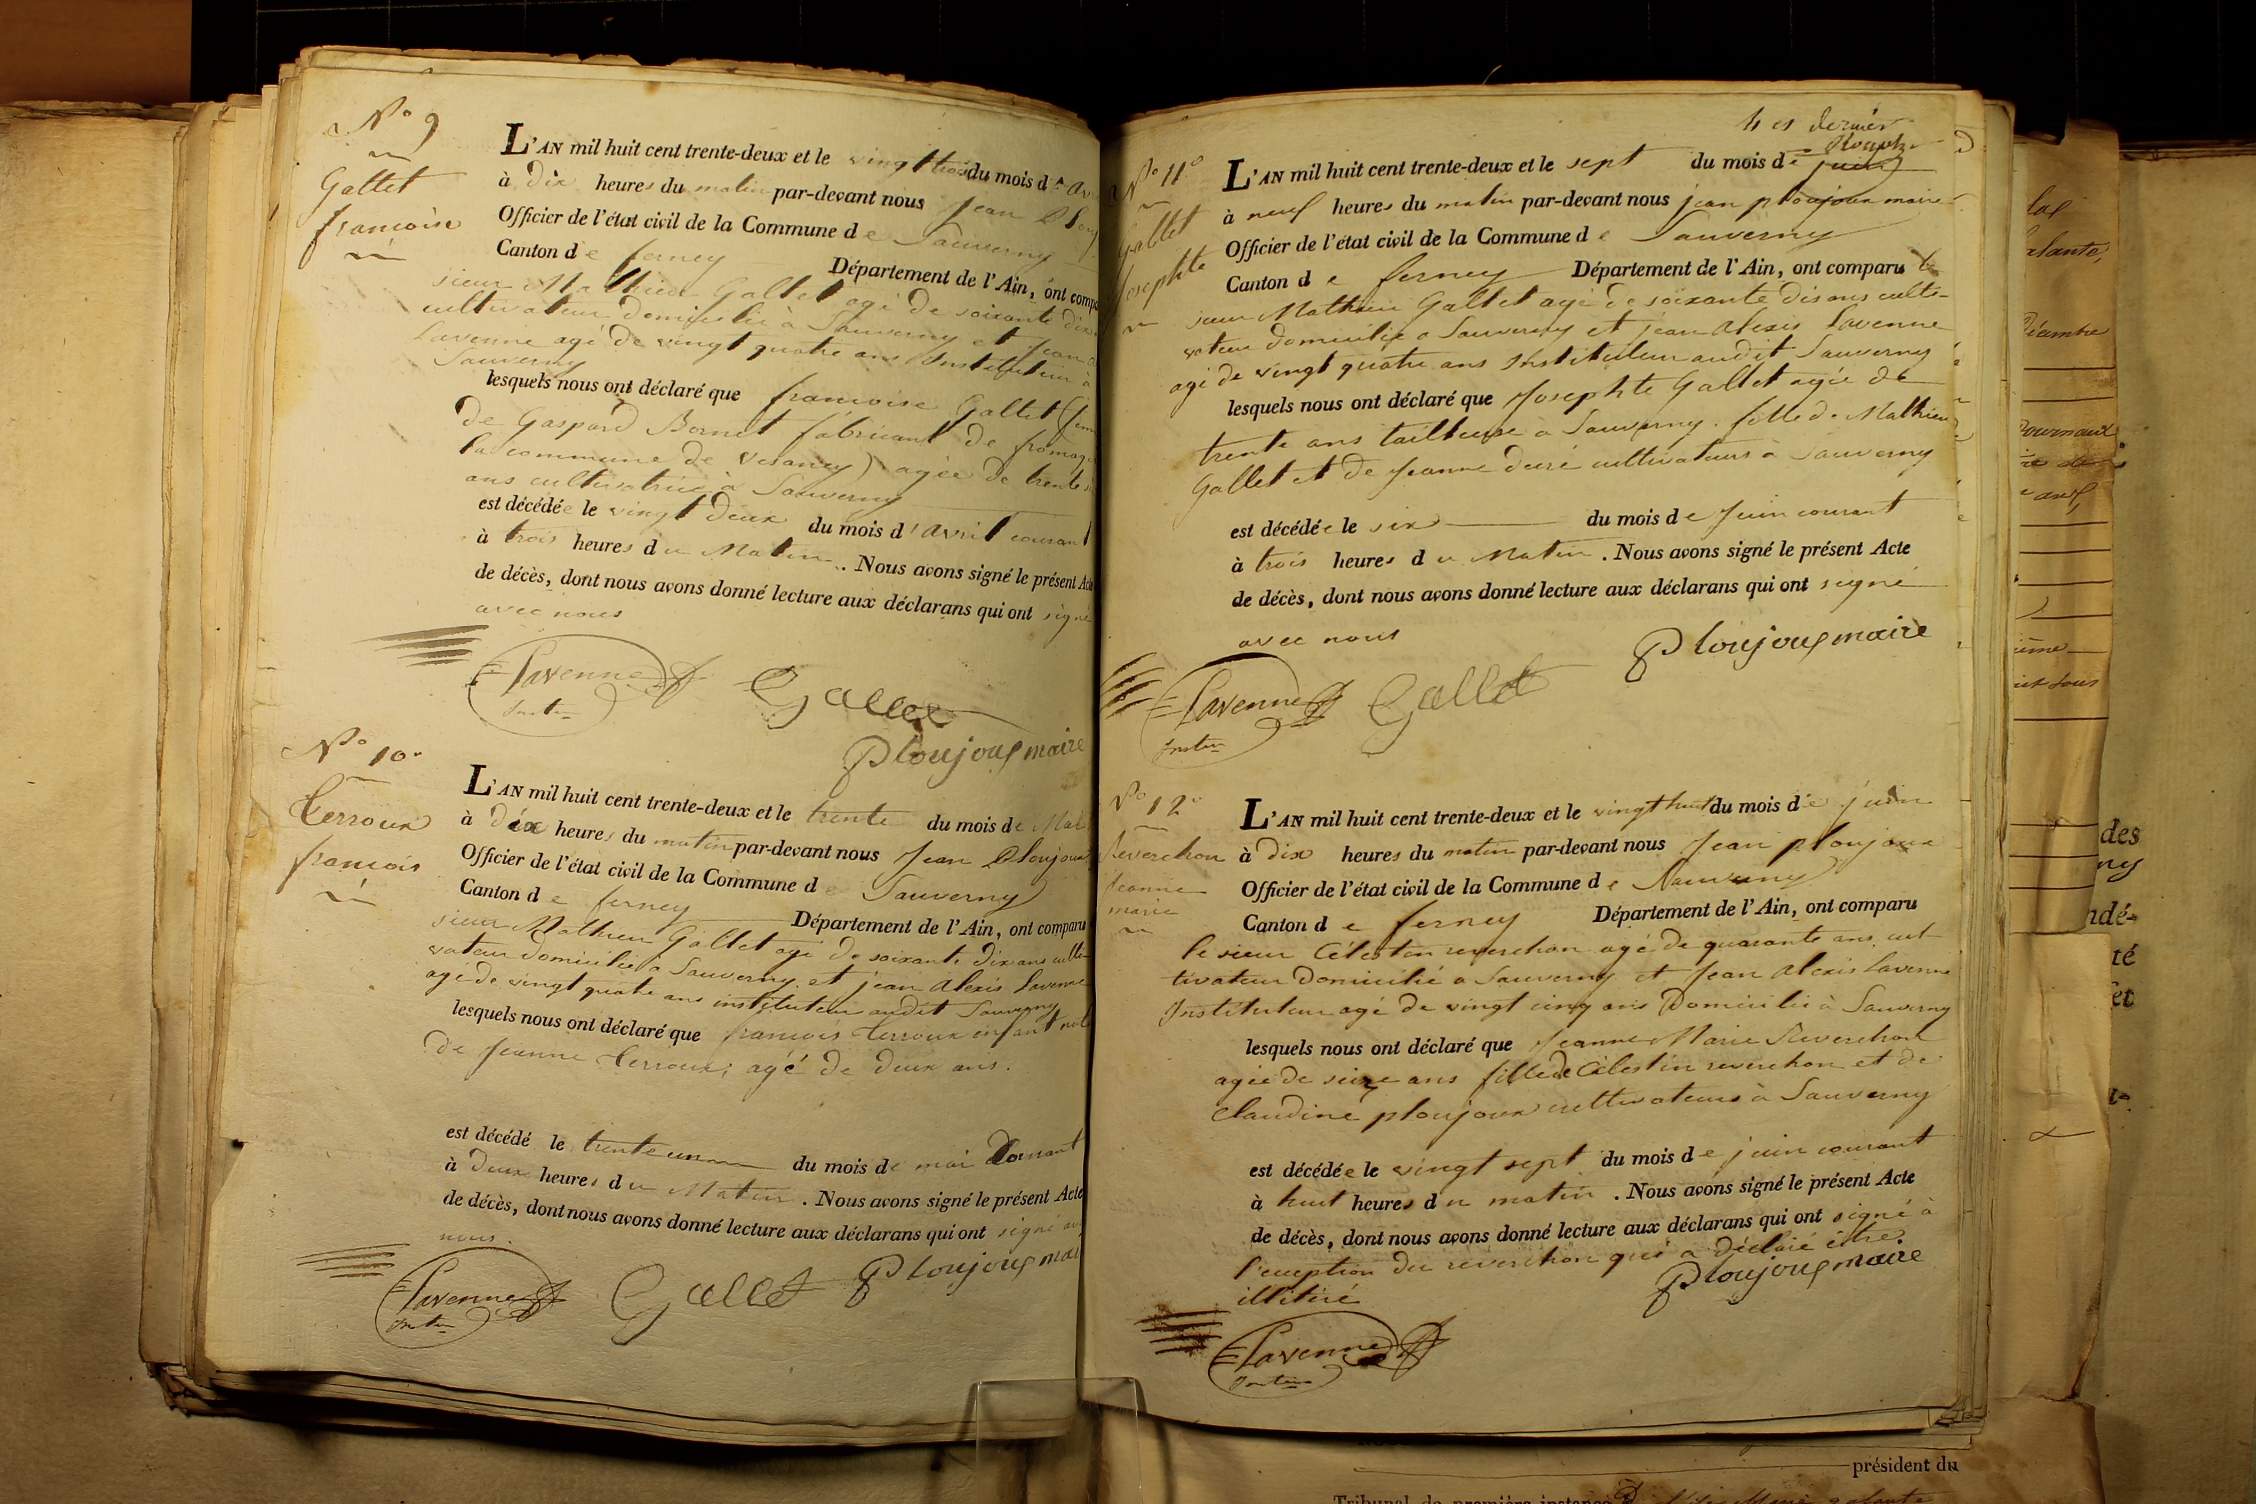 N° 9
Gallet
françoise
L'AN mil huit cent trente-deux et le vingt trois du mois d'
à dix heures du matin par-devant nous Jean
Officier de l'état civil de la Commune de Sauverny
Canton de ferney Département de l'Ain, ont
sieur Mathieu Gallet agé de soixante
cultivateur domicilié à Sauverny et Jean
Lavenne agé de vingt quatre ans Instituteur à
Sauverny
lesquels nous ont déclaré que françoise Gallet
de Gaspard Bornet fabricant de
la commune de Vesancy) agée de trente
ans cultivatrice à Sauverny
est décédée le vingt deux du mois d'avril courant
à trois heures du Matin. Nous avons signé le présent
de décès, dont nous avons donné lecture aux déclarans qui ont signé
avec nous
Lavenne
Gallet
Ploujoux maire
N° 10.
Terroux
francois
L'AN mil huit cent trente-deux et le trente du mois de Mai
à dix heures du matin par-devant nous Jean Ploujoux
Officier de l'état civil de la Commune de Sauverny
Canton de ferney Département de l'Ain, ont comparu
sieur Mathieu Gallet agé de soixante dix ans culti-
vateur domicilié à Sauverny et jean Alexis Lavenne
agé de vingt quatre ans instituteur audit Sauverny
lesquels nous ont déclaré que francois Terroux enfant
de Jeanne Terroux; agé de deux ans.
est décédé le trente un du mois de mai courant
à deux heures du Matin. Nous avons signé le présent Acte
de décès, dont nous avons donné lecture aux déclarans qui ont signé
nous.
Lavenne Gallet Ploujoux
N° 11°
Gallet
Josephte
L'AN mil huit cent trente-deux et le sept du mois de juin
à neuf heures du matin par-devant nous jean ploujoux maire
Officier de l'état civil de la Commune de Sauverny
Canton de ferney Département de l'Ain, ont comparu le
sieur Mathieu Gallet agé de soixante dix ans culti-
vateur domicilié a Sauverny et jean Alexis Lavenne
agé de vingt quatre ans Instituteur audit Sauverny
lesquels nous ont déclaré que Josephte Gallet agée de
trente ans tailleuse a Sauverny. fille de Mathieu
Gallet et de Jeanne cultivateurs à Sauverny
est décédée le six du mois de Juin courant
à trois heures du Matin. Nous avons signé le présent Acte
de décès, dont nous avons donné lecture aux déclarans qui ont signé
avec nous
Ploujoux maire
Lavenne Gallet
N° 12°
Reverchon
Jeanne
marie
L'AN mil huit cent trente-deux et le vingt huit du mois de juin
à dix heures du matin par-devant nous Jean ploujoux
Officier de l'état civil de la Commune de Sauverny
Canton de ferney Département de l'Ain, ont comparu
le sieur Célestin reverchon agé de quarante ans cul-
tivateur domicilié a Sauverny et Jean Alexis Lavenne
Instituteur agé de vingt cinq ans Domicilié à Sauverny
lesquels nous ont déclaré que Jeanne Marie Reverchon
agée de seize ans fille de Célestin reverchon et de
Claudine ploujoux cultivateurs à Sauverny
est décédée le vingt sept du mois de juin courant
à huit heures du matin. Nous avons signé le présent Acte
de décès, dont nous avons donné lecture aux déclarans qui ont signé à
l'exception du reverchon qui a déclaré être
illitiré
Ploujoux maire
Lavenne
président du